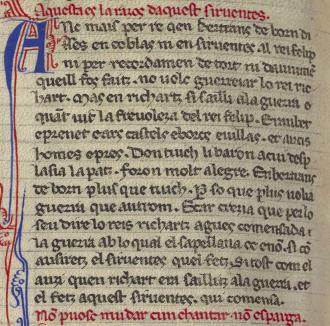 Aquesta es la razos daquest siruentes.
Anc mais per re qen bertrans de born di
sses en coblas ni en siruentes al rei felip
ni per recordamen de tort ni daunimen
queill fos faitz. no uolc guerreiar lo rei ric
hart. Mas en richartz si sailli ala guerra q
uant uit la freuoleza del rei felip. Eraubet
epres et ars castels eborcs euillas. et aucis
homes epres. Don tuich li baron acui desp
lasia la patz. foron molt alegre. Enbertrans
de born plus que tuich. Per so que plus uolia
guerra que autrom. Ecar crezia que perlo
seu dire lo reis richartz agues comensada
la guerra ab lo qual el sapellaua oc eno. si co
auziretz el siruentes quel fetz. sitost com el
auzi quen richart era saillitz ala guerra. et
el fetz aquest siruentes. qui comensa.
Non puosc mudar cun chantar non esparga.